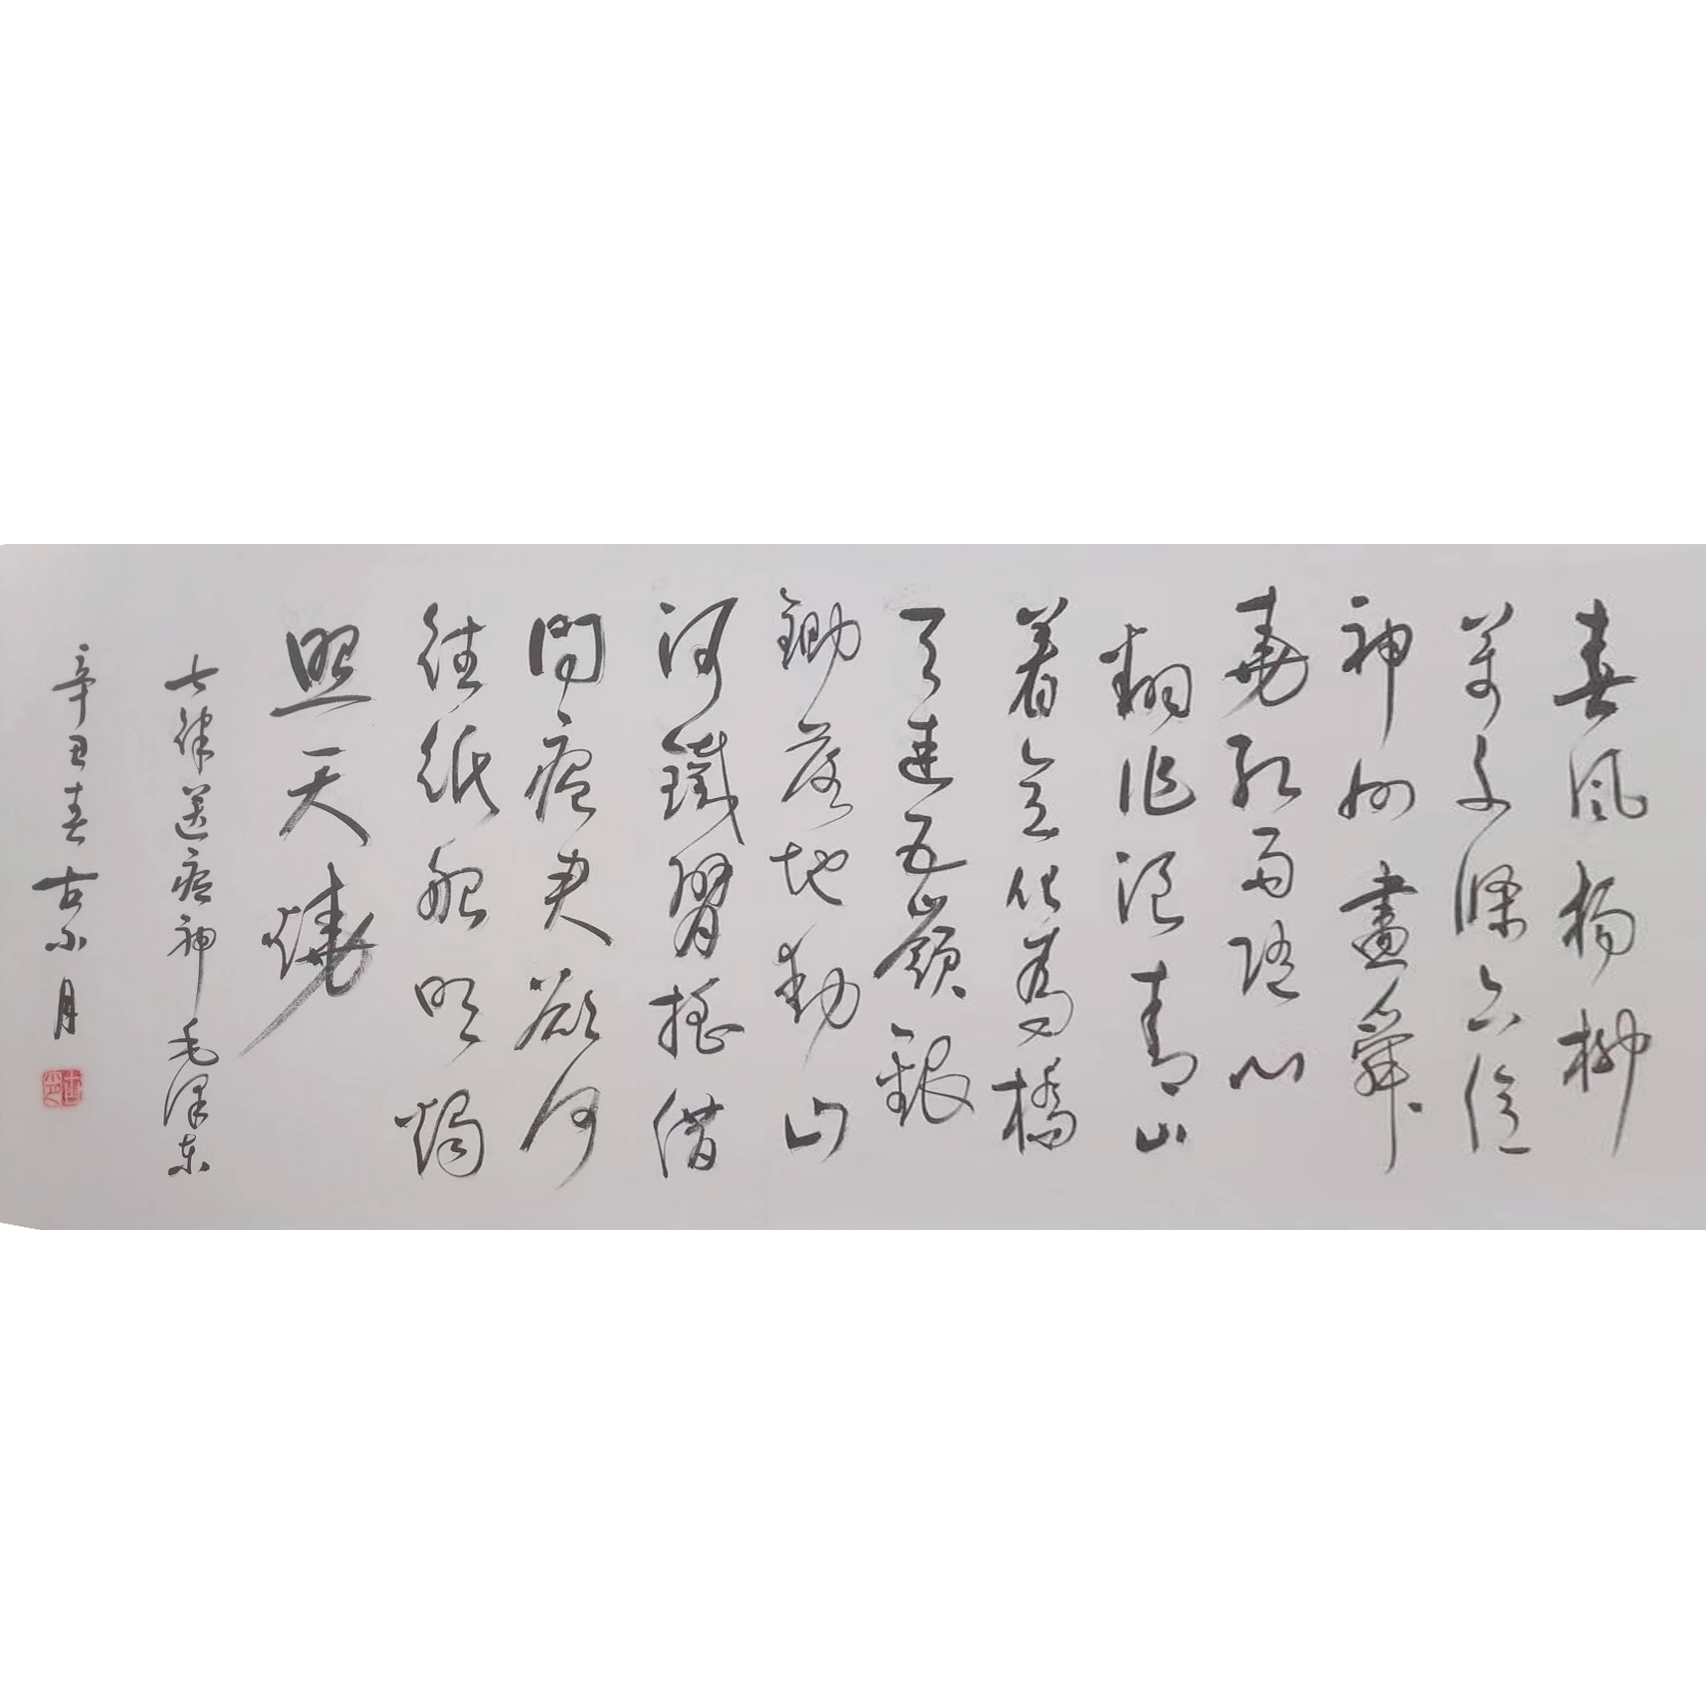 春風楊柳
萬千條六億
神州盡舜
堯紅雨隨心
翻作浪青山
着意化為橋
天連五嶺銀
鋤落地動山
河鐵臂搖借
問瘟君欲何
往紙船明燭
照天燒
七律送瘟神毛澤東
辛丑春古月